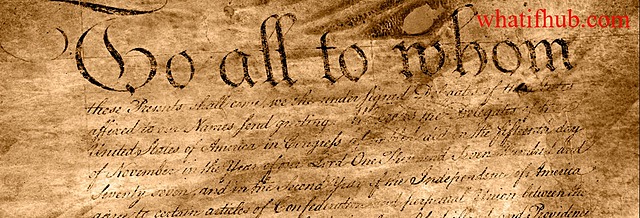 whatifhub.com
To all to whom
these Presents shall come, we the under signed Delegates of the States
affixed to our Names send greeting. Whereas the Delegates of the
United States of America in Congress assembled did on the fifteenth day
of November in the Year of our Lord One Thousand Seven Hundred and
Seventy seven, and in the Second Year of the Independence of America
agree to certain articles of Confederation and perpetual Union between the